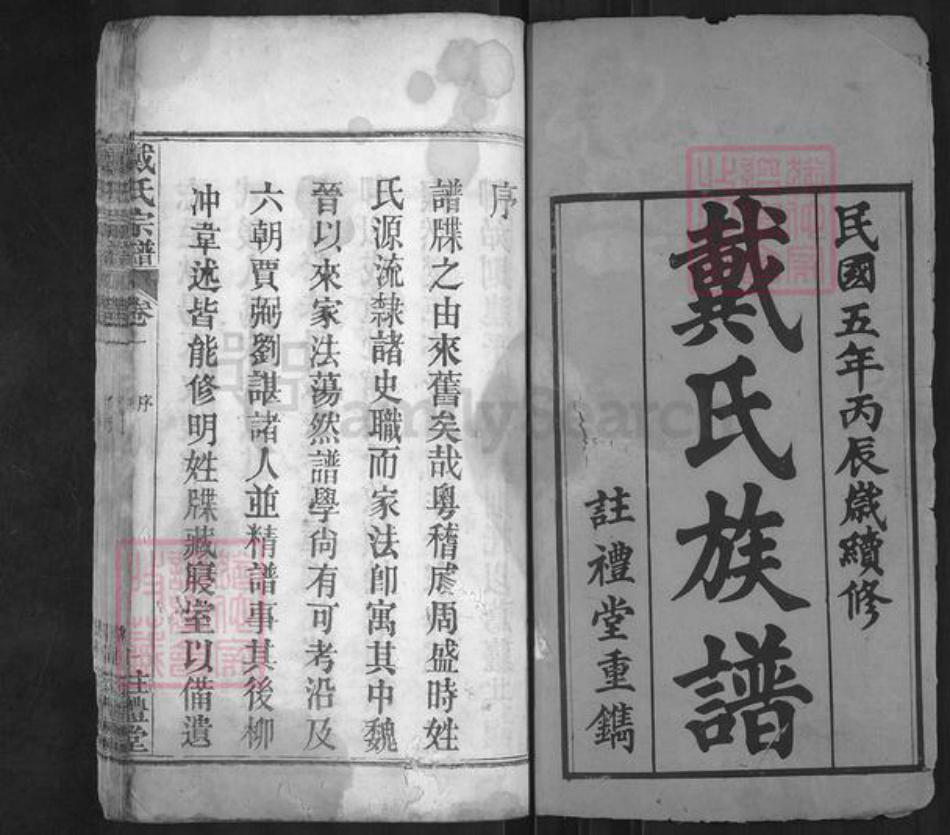 民國五年丙辰歲續修
戴氏族譜
註禮堂重鐫
序
譜牒之由來舊矣哉粵稽成周盛時姓
氏源流隸諸史職而家法卽寓其中魏
晉以來家法蕩然譜學尙有可考沿及
六朝賈弼劉諶諸人並精譜事其後柳
冲韋述皆能修明姓牒藏寢室以備遺
戴氏宗譜 卷一 序 註禮堂
FamilySearch